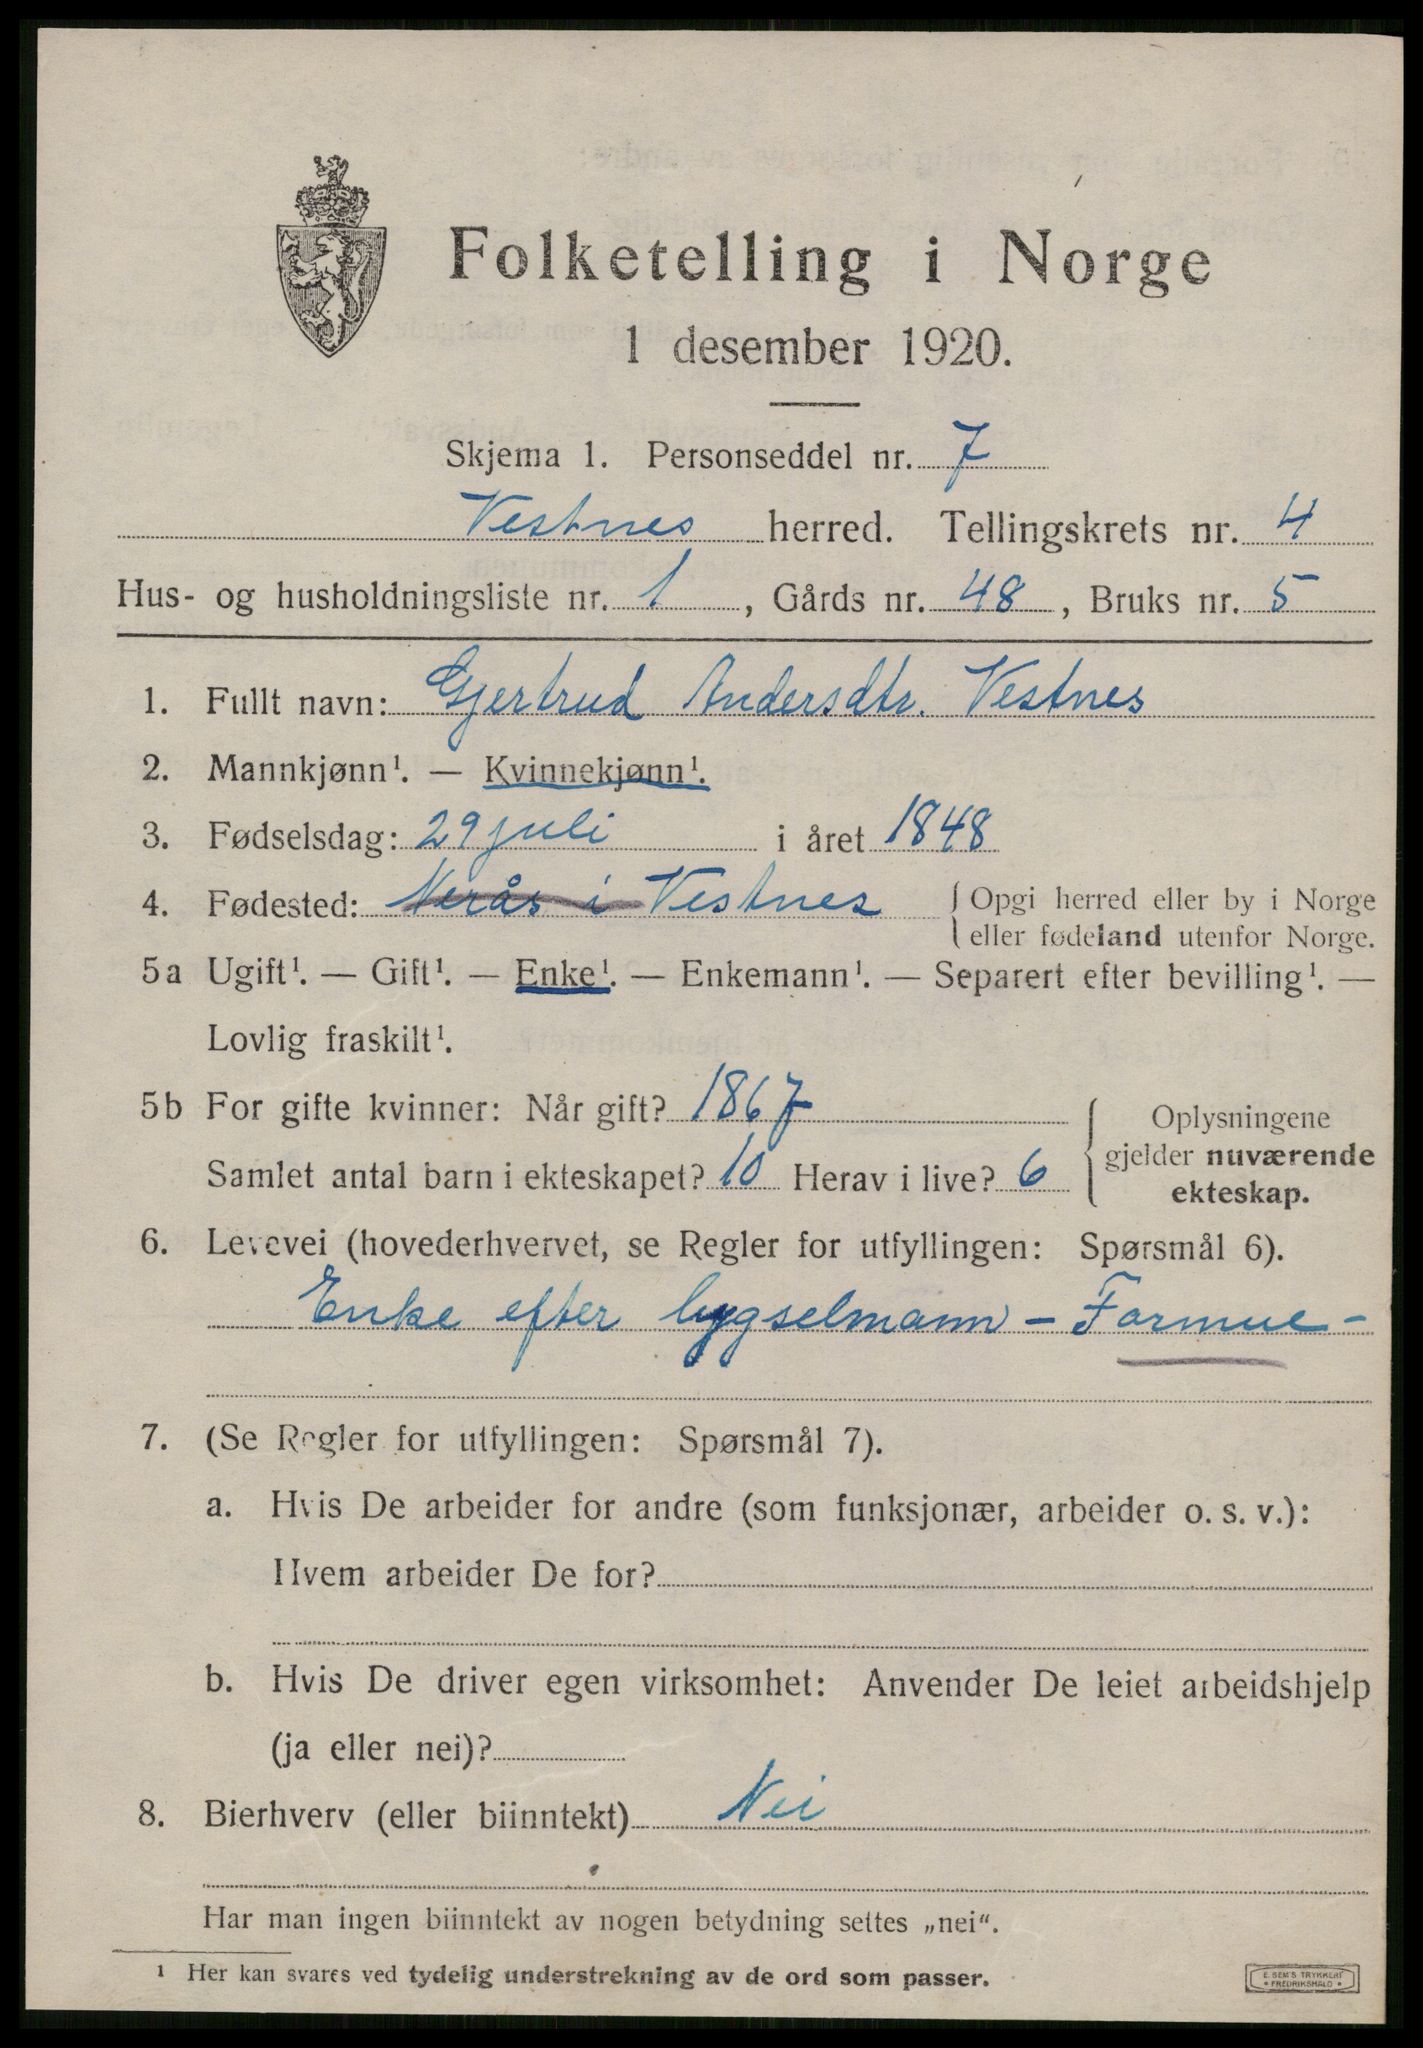 Folketelling i Norge
1 desember 1920.
Skjema 1. Personseddel nr. 7
Vestnes herred. Tellingskrets nr. 4
Hus- og husholdningsliste nr. 1, Gårds nr. 48, Bruks nr. 5
1. Fullt navn: Gjertrud Andersdtr. Vestnes
2. Mannkjønn¹. — Kvinnekjønn¹.
3. Fødselsdag: 29 juli i året 1848
4. Fødested: Nerås i Vestnes { Opgi herred eller by i Norge
eller fødeland utenfor Norge.
5a Ugift¹. — Gift¹. — Enke¹. — Enkemann¹. — Separert efter bevilling¹. —
Lovlig fraskilt¹.
5b For gifte kvinner: Når gift? 1867
Samlet antal barn i ekteskapet? 10 Herav i live? 6
{ Oplysningene
gjelder nuværende
ekteskap.
6. Levevei (hovederhvervet, se Regler for utfyllingen: Spørsmål 6).
Enke efter bygselmann - Formue -
7. (Se Regler for utfyllingen: Spørsmål 7).
a. Hvis De arbeider for andre (som funksjonær, arbeider o. s. v.):
Hvem arbeider De for?
b. Hvis De driver egen virksomhet: Anvender De leiet arbeidshjelp
(ja eller nei)?
8. Bierhverv (eller biinntekt) Nei
Har man ingen biinntekt av nogen betydning settes „nei“.
¹ Her kan svares ved tydelig understrekning av de ord som passer.
E. SEM'S TRYKKERI
• FREDRIKSHALD •